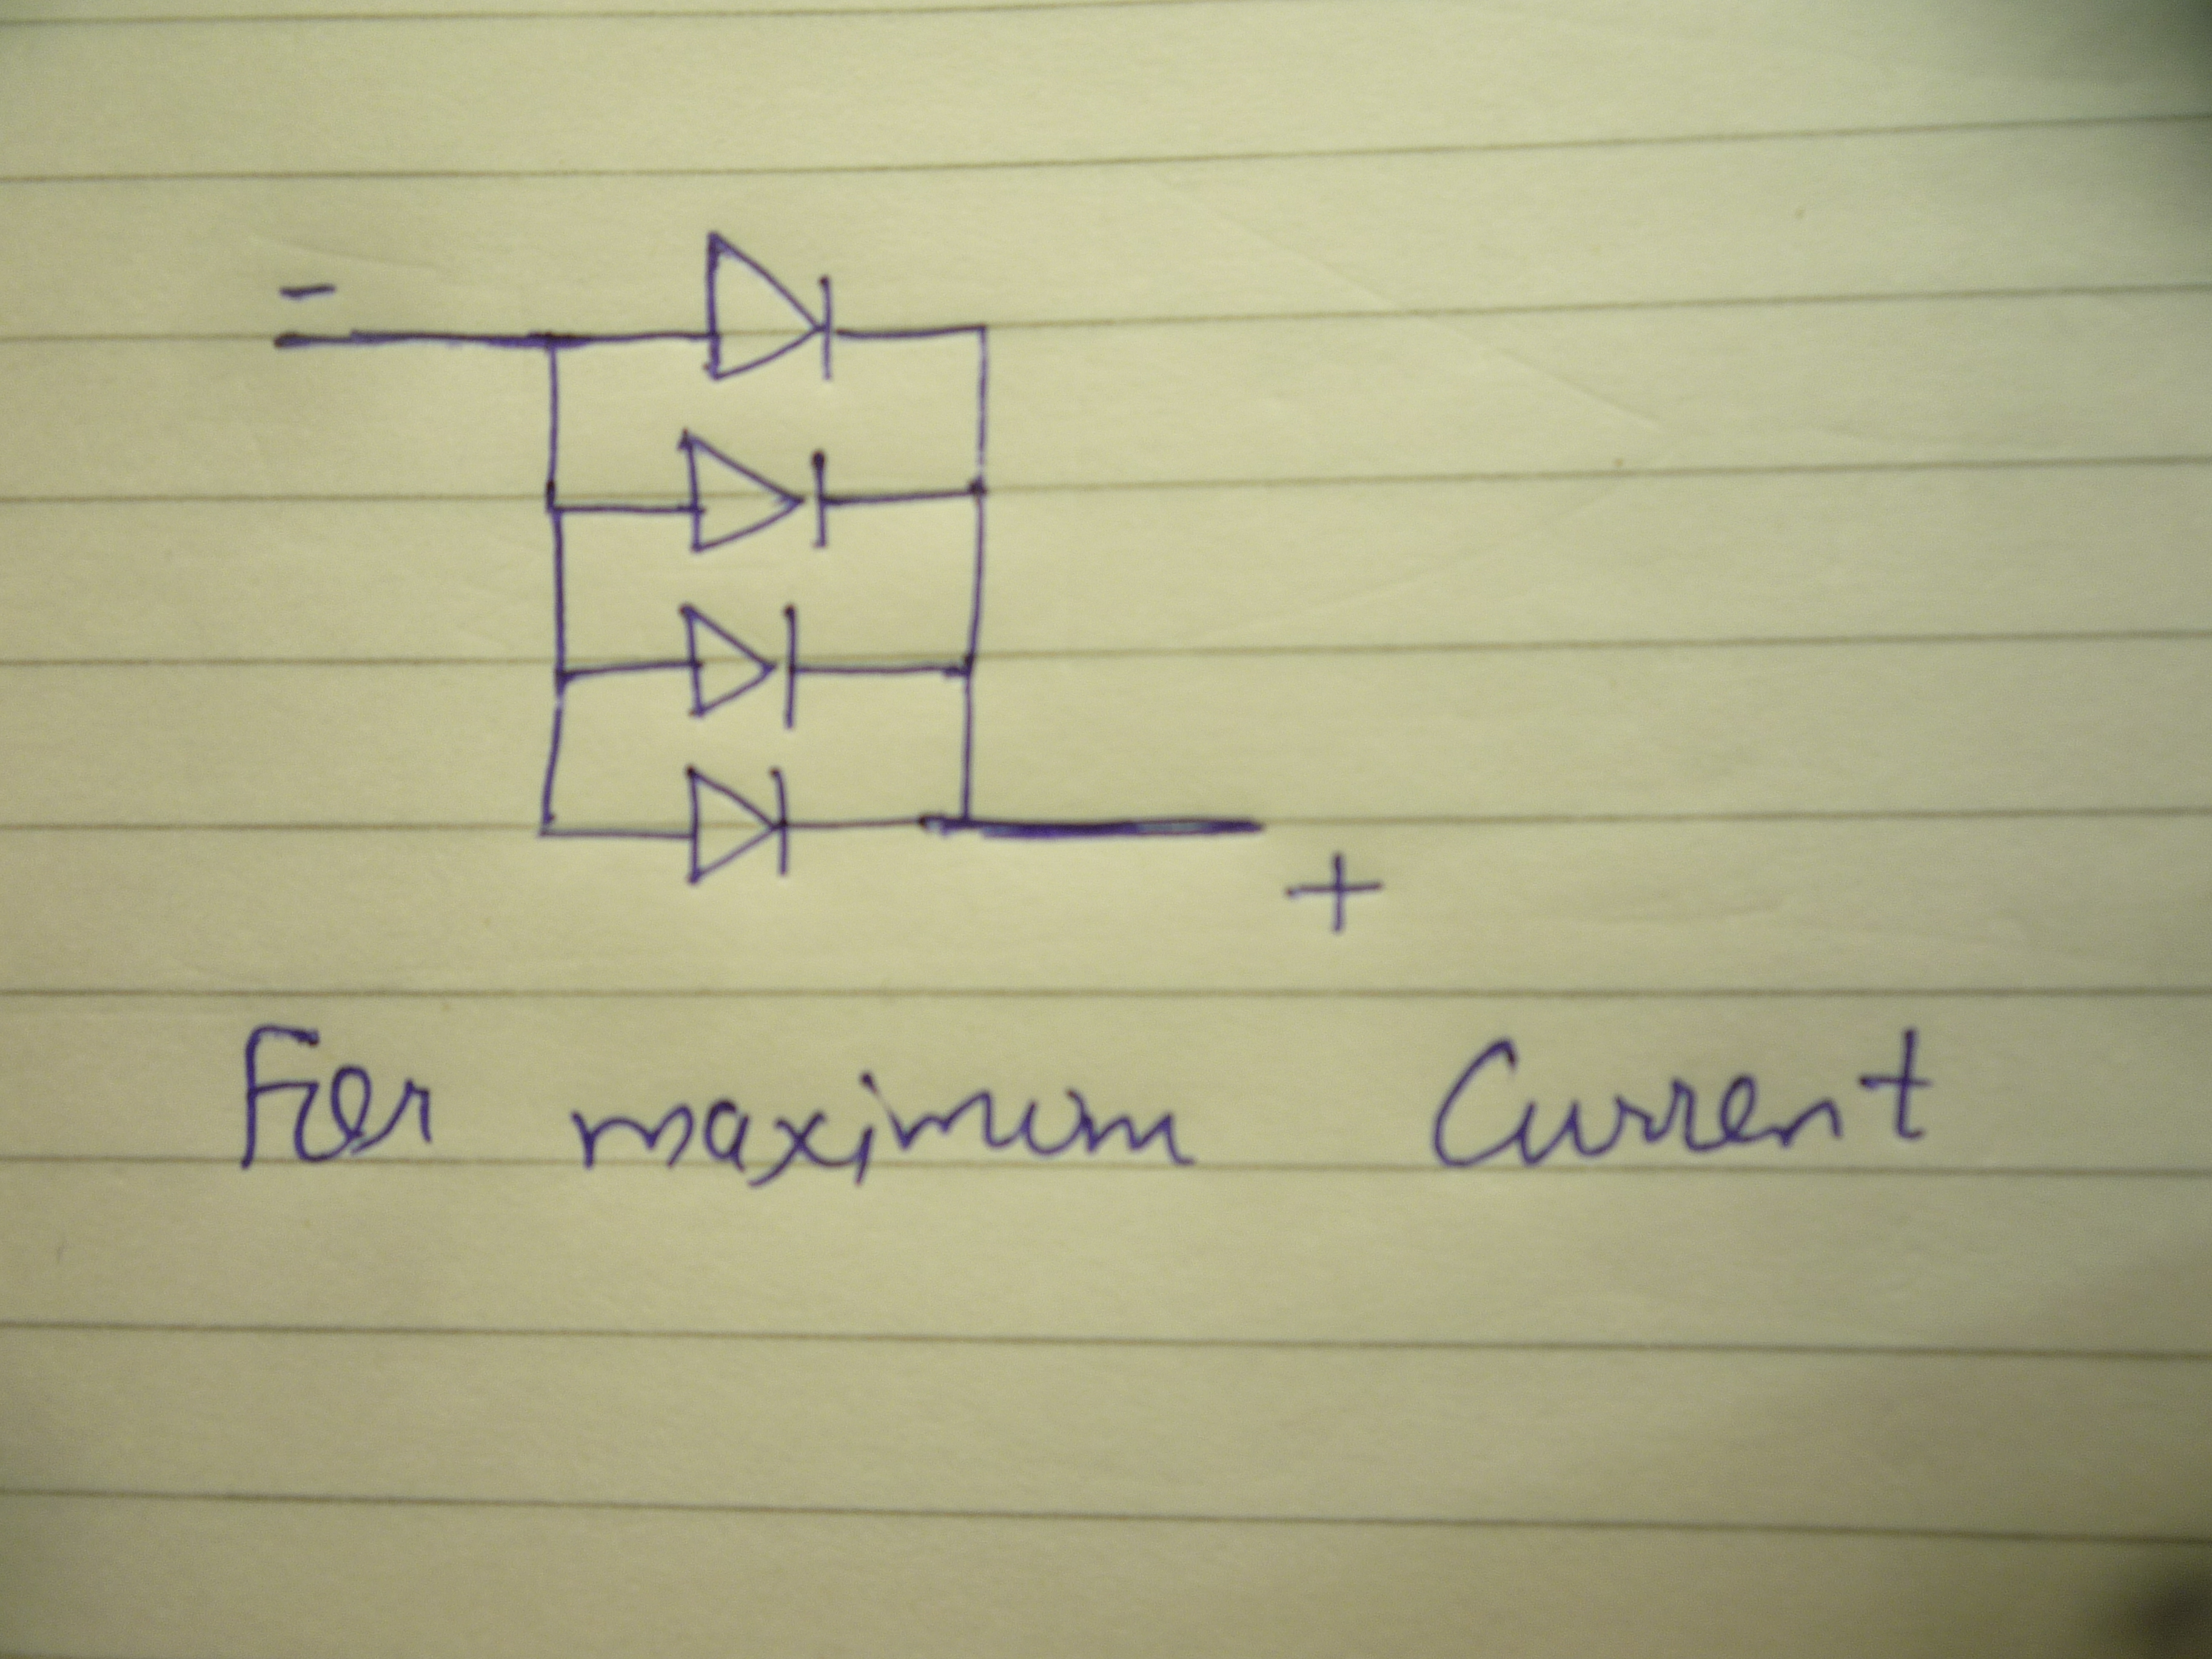 -
+
For maximum Current